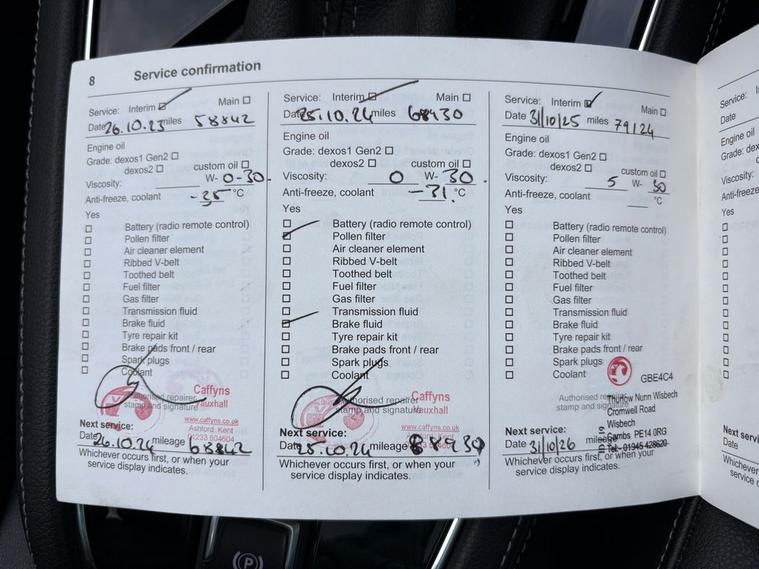 8 Service confirmation
Service: Interim Main
Date 26.10.23 miles 58842
Engine oil
Grade: dexos1 Gen2
dexos2 custom oil
Viscosity: W- 0-30
Anti-freeze, coolant -35 °C
Yes
Battery (radio remote control)
Pollen filter
Air cleaner element
Ribbed V-belt
Toothed belt
Fuel filter
Gas filter
Transmission fluid
Brake fluid
Tyre repair kit
Brake pads front / rear
Spark plugs
Coolant
Caffyns
Vauxhall
Authorised repairer
stamp and signature
www.caffyns.co.uk
Ashford, Kent
01233 504604
Next service:
Date 26.10.24 mileage 68842
Whichever occurs first, or when your
service display indicates.
Service: Interim Main
Date 25.10.24 miles 68430
Engine oil
Grade: dexos1 Gen2
dexos2 custom oil
Viscosity: 0 W- 30
Anti-freeze, coolant -31 °C
Yes
Battery (radio remote control)
Pollen filter
Air cleaner element
Ribbed V-belt
Toothed belt
Fuel filter
Gas filter
Transmission fluid
Brake fluid
Tyre repair kit
Brake pads front / rear
Spark plugs
Coolant
Authorised repairer
stamp and signature
Caffyns
Vauxhall
www.caffyns.co.uk
Next service:
Date 25.10.24 mileage
Whichever occurs first, or when your
service display indicates.
Service: Interim Main
Date 31/10/25 miles 79124
Engine oil
Grade: dexos1 Gen2
dexos2 custom oil
Viscosity: 5 W- 30
Anti-freeze, coolant °C
Yes
Battery (radio remote control)
Pollen filter
Air cleaner element
Ribbed V-belt
Toothed belt
Fuel filter
Gas filter
Transmission fluid
Brake fluid
Tyre repair kit
Brake pads front / rear
Spark plugs
Coolant
GBE4C4
Authorised
stamp and
Thurlow Nunn Wisbech
Cromwell Road
Wisbech
Cambs PE14 0RG
Tel: 01945 428620
Next service:
Date 31/10/26 mileage
Whichever occurs first, or when your
service display indicates.
Service:
Date
Engine oil
Grade: dex
Viscosity:
Anti-freeze
Yes
Next servi
Date
Whichever
service d
P